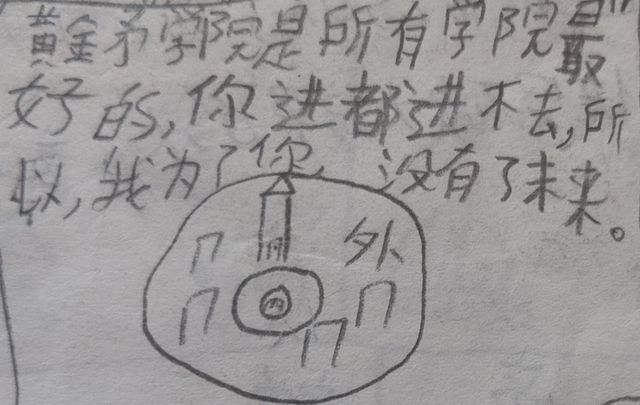 黄金矛学院是所有学院最
好的,你进都进不去,所
以,我为了你,没有了未来。
外